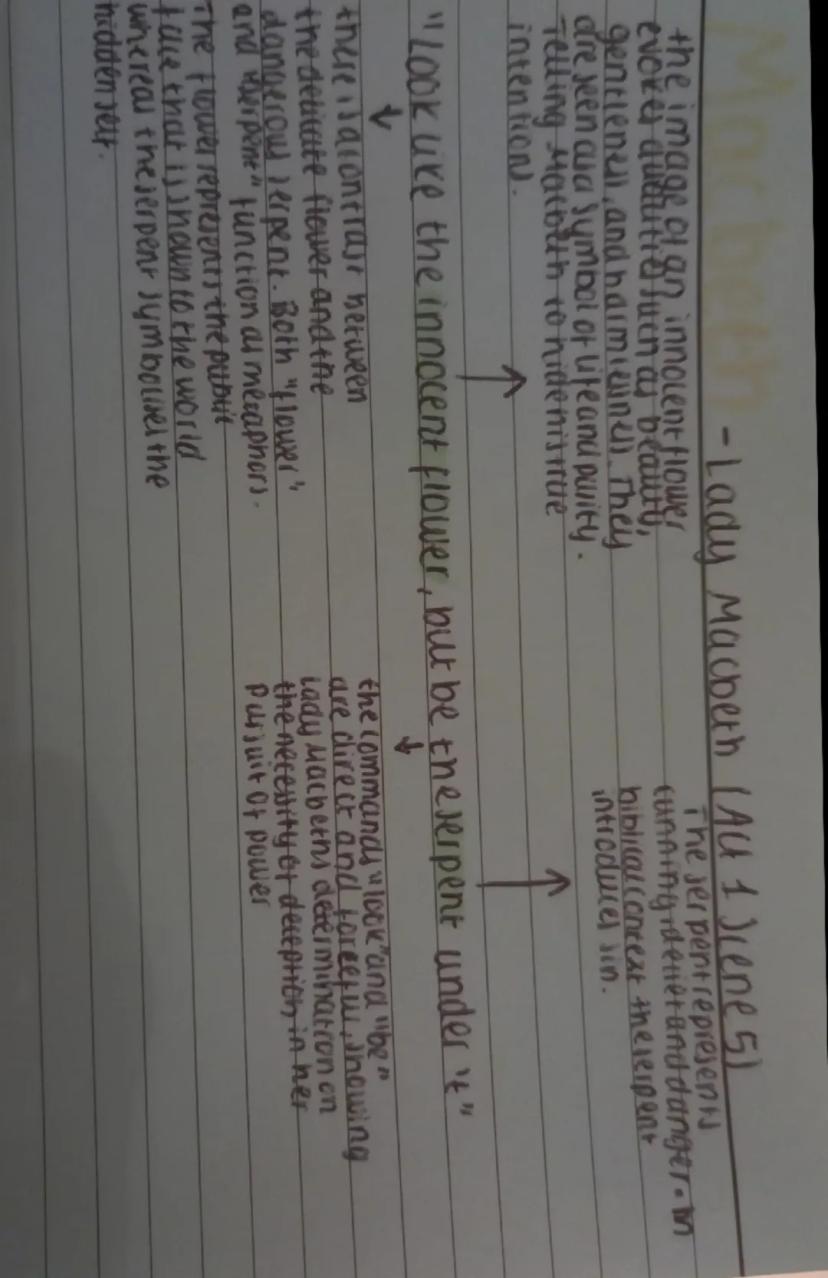 Macbeth
- Lady Macbeth (Act 1 Scene 5)
the image of an innocent flower
evokes qualities such as beauty,
gentleness, and harmlessness. They
are seen as a symbol of life and purity.
Telling Macbeth to hide his true
intentions.
The serpent represents
cunning, deceit and danger. In
biblical context the serpent
introduces sin.
"Look like the innocent flower, but be the serpent under 't"
there is a contrast between
the delicate flower and the
dangerous serpent. Both "flower"
and "serpent" function as metaphors.
The flower represents the public
face that is shown to the world
whereas the serpent symbolises the
hidden self.
the commands "look" and "be"
are direct and forceful, showing
Lady Macbeths determination on
the necessity of deception in her
pursuit of power